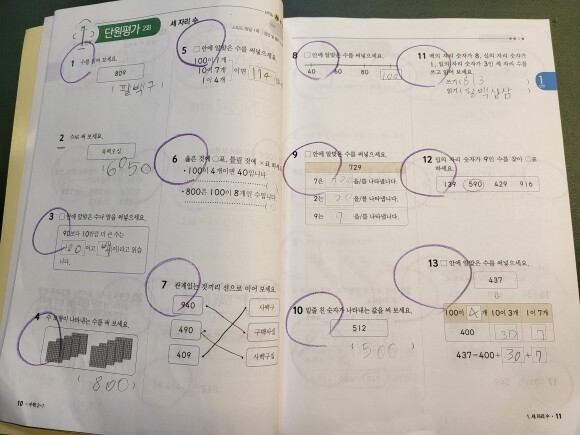 단원평가 2회
세 자리 수
1 수를 읽어 보세요.
809
(팔백구)
2 수로 써 보세요.
육백오십
6050
3 □ 안에 알맞은 수나 말을 써넣으세요.
90보다 10만큼 더 큰 수는
100 이고 이라고 읽습
니다.
4 수 모형이 나타내는 수를 써 보세요.
(800)
10 • 수학 2-1
5 □ 안에 알맞은 수를 써넣으세요.
100이 1개
10이 7개 이면 174
1이 4개
6 옳은 것에 ○표, 틀린 것에 ×표 하세요.
• 100이 4개이면 40입니다.
• 800은 100이 8개인 수입니다.
7 관계있는 것끼리 선으로 이어 보세요.
940 사백구
490 구백사십
409 사백구십
8 □ 안에 알맞은 수를 써넣으세요.
40 60 80 100
9 □ 안에 알맞은 수를 써넣으세요.
729
7은 700 을/를 나타냅니다.
2는 20 을/를 나타냅니다.
9는 9 을/를 나타냅니다.
10 밑줄 친 숫자가 나타내는 값을 써 보세요.
512
(500)
11 백의 자리 숫자가 8, 십의 자리 숫자가
1, 일의 자리 숫자가 3인 세 자리 수를
쓰고 읽어 보세요.
쓰기 (813)
읽기 (팔백십삼)
12 십의 자리 숫자가 9인 수를 찾아 ○표
하세요.
139 590 429 916
13 □ 안에 알맞은 수를 써넣으세요.
437
100이 4개 10이 3개 1이 7개
400 30 7
437=400+30+7
1
1. 세 자리 수 • 11